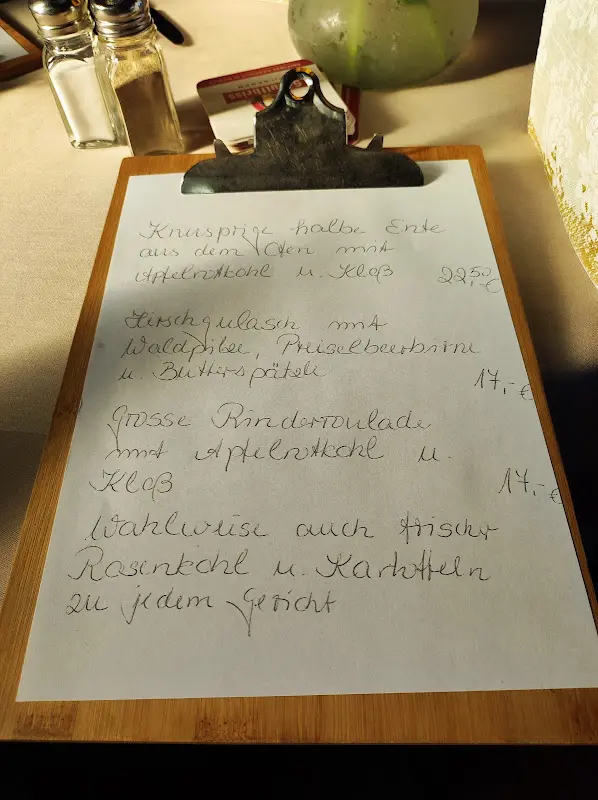 Knusprige halbe Ente
aus dem Ofen mit
Apfelrotkohl u. Kloß 22,50 €
Hirschgulasch mit
Waldpilze, Preiselbeerbirne
u. Butterspätzle 17,- €
grosse Rinderroulade
mit Apfelrotkohl u.
Kloß 17,- €
Wahlweise auch frischer
Rosenkohl u. Kartoffeln
zu jedem Gericht